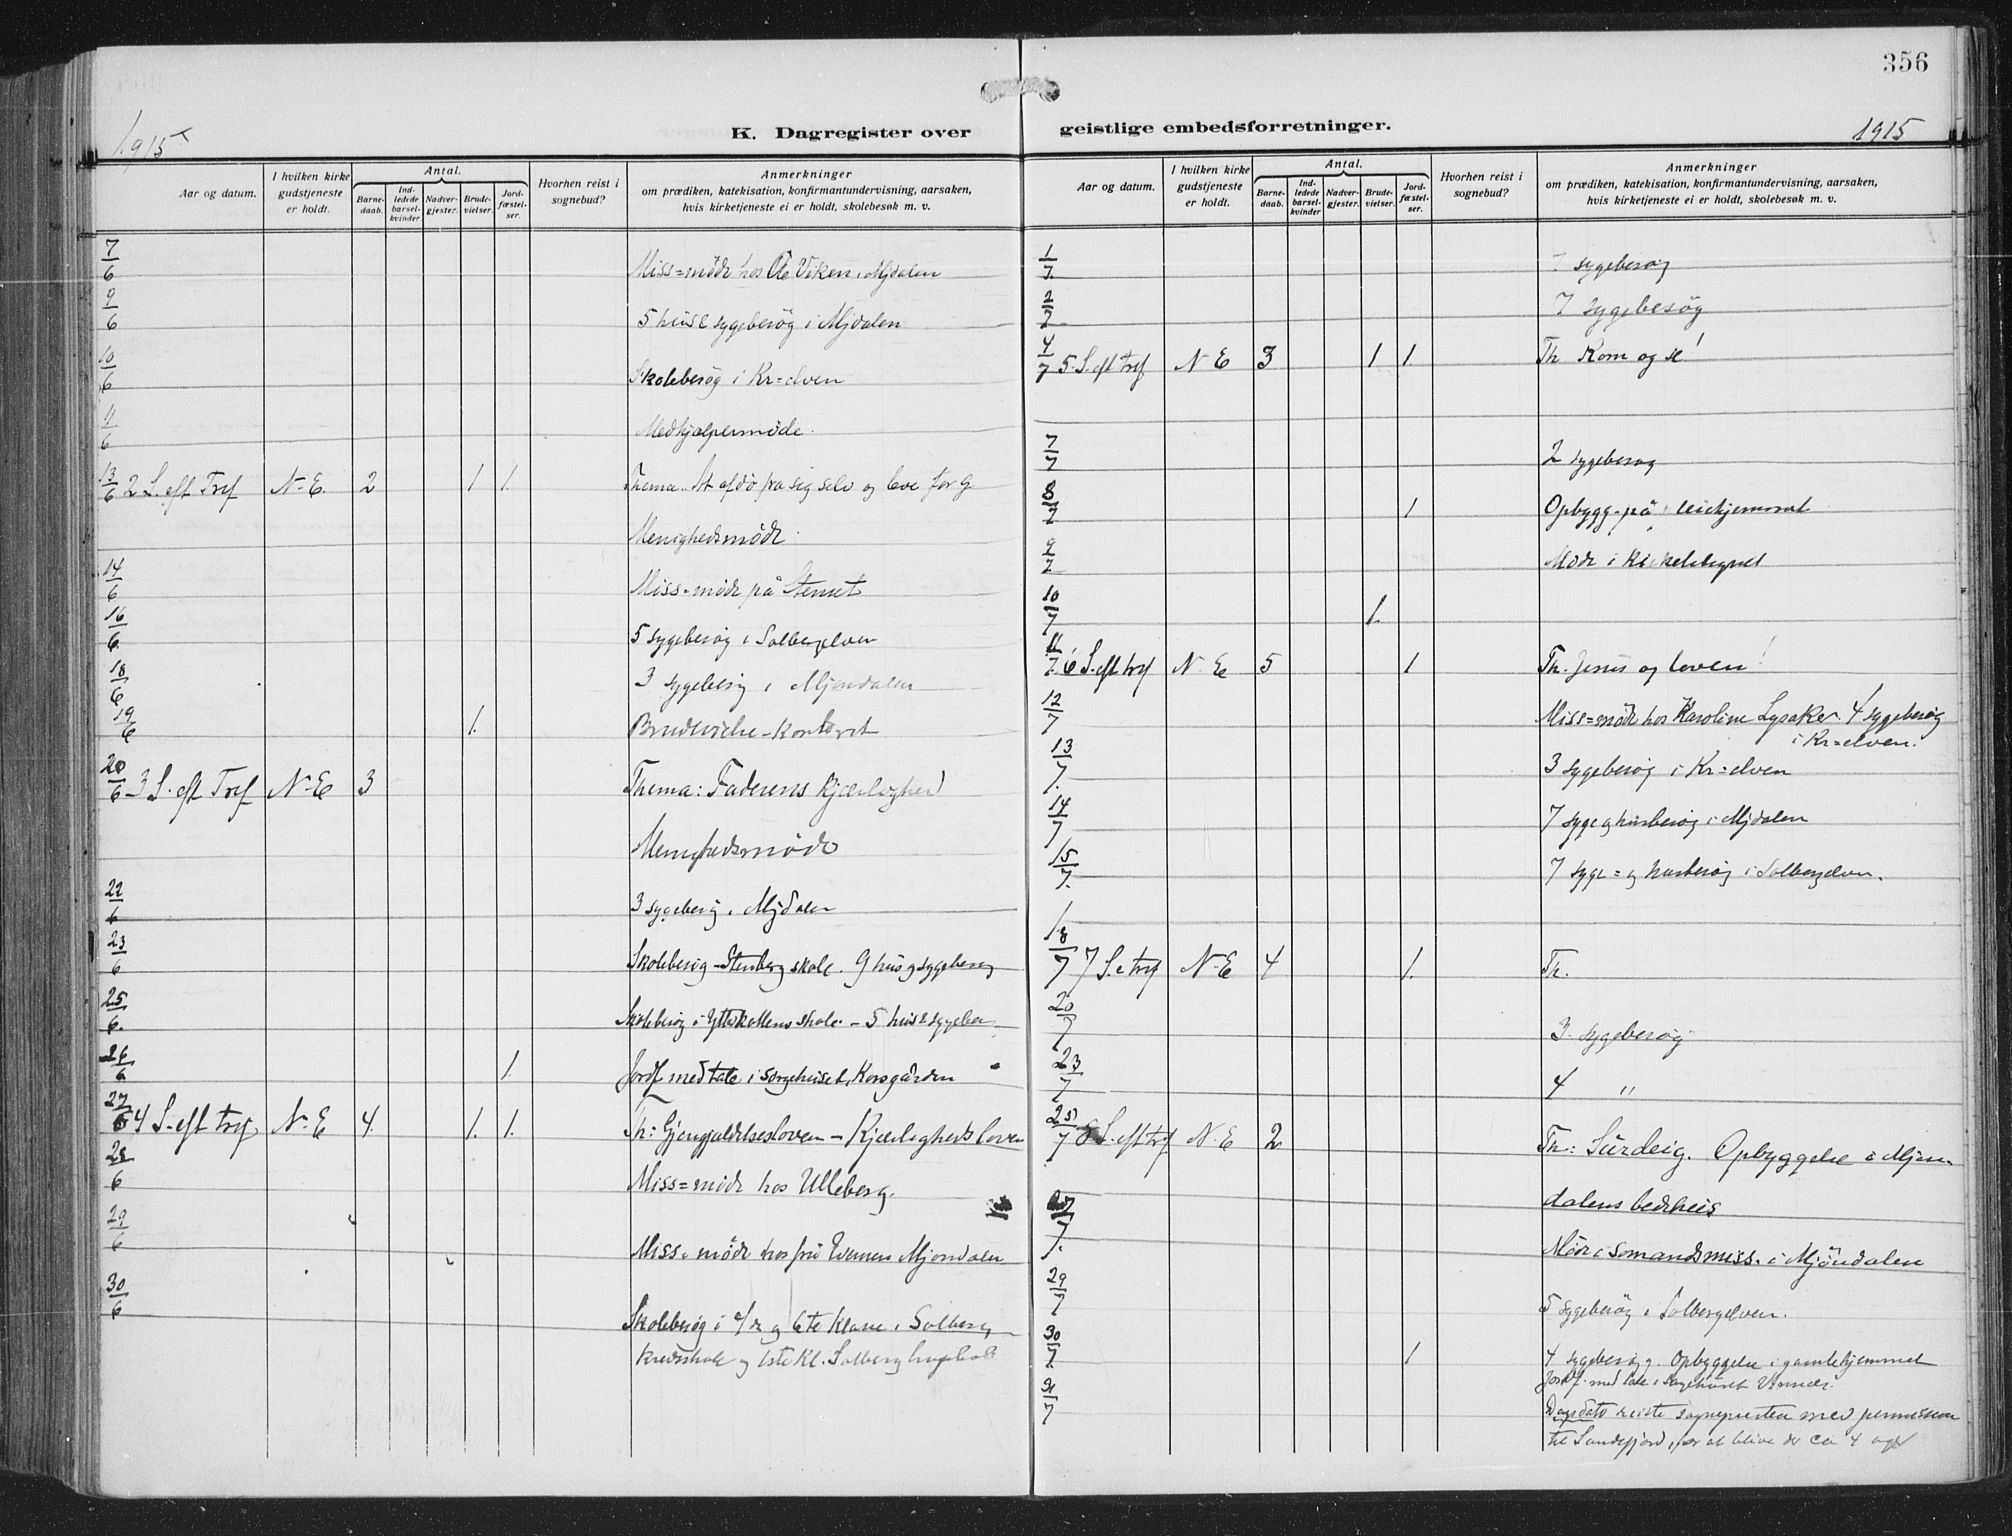 356
1915
K. Dagregister over
Aar og datum.
I hvilken kirke gudstjeneste er holdt.
Antal.
Barnedaab.
Indledede barselkvinder
Nadvergjester.
Brudevielser.
Jordfæstelser.
Hvorhen reist i sognebud?
Anmerkninger
om prædiken, katekisation, konfirmantundervisning, aarsaken,
hvis kirketjeneste ei er holdt, skolebesøk m. v.
7/6 Miss=møde hos Viken i Mjdalen
9/6 5 huse sygebesøg i Mjdalen
10/6 Skolebesøg i Kr=elven
11/6 Medhjælpermøde.
13/6 2 S. eft Tref N-E. 2 1 1. Thema. At afdø fra sig selv og leve for G
Menighedsmøde.
14/6 Miss-møde på Stenset
16/6. 5 sygebesøg i Solbergelven
18/6 3 sygebesøg i Mjøndalen
19/6 1. Brudevielse - Kontoret
20/6 3 S. eft Tref N-E 3 Thema: Faderens kjærlighed
Menighedsmøde
22/6 3 sygebesøg i Mjdalen
23/6 Skolebesøg - Stenberg skole. 9 hus og sygebesøg
25/6. Skolebesøg i Ytterkollens skole. - 5 huse sygebe
26/6 1. Jordf med tale i sørgehuset, Korsgården
27/6 4 S. eft tref N-E 4. 1. 1. Th: Gjengjældelsesloven - Kjærlighedsloven
28/6 Miss=møde hos Ulleberg.
29/6 Miss-møde hos fru Mjøndalen
30/6
Skolebesøg i og 6te klasse i Solberg
kredsskole og 1ste kl. Solberg
geistlige embedsforretninger.
1915
Aar og datum.
I hvilken kirke gudstjeneste er holdt.
Antal.
Barnedaab.
Indledede barselkvinder
Nadvergjester.
Brudevielser.
Jordfæstelser.
Hvorhen reist i sognebud?
Anmerkninger
om prædiken, katekisation, konfirmantundervisning, aarsaken,
hvis kirketjeneste ei er holdt, skolebesøk m. v.
1/7. 7 sygebesøg
2/7 7 sygebesøg
4/7 5. S. eft tref N E 3 1 1. Th Kom og se!
7/7 2 sygebesøg
8/7 1. Opbygg. på
9/7 Møde i
10/7 1.
11/7. 6 S. eft tref N-E 5 1 Th. Jesus og loven!
12/7 Miss=møde hos Karoline Lysaker. 4 sygebesøg
i Kr=elven.
13/7. 3 sygebesøg i Kr=elven
14/7 7 syge og husbesøg i Mjdalen
15/7. 7 syge= og husbesøg i Solbergelven.
18/7 7 S. e tref N-E 4 1. Th.
20/7 3 sygebesøg
23/7 4 "
25/7 8 S. eft tref N. E 2 Th: Surdeig. Opbyggelse i Mjøn-
dalens bedehus
27/7. Møde i Sømandsmiss. i Mjöndalen
29/7 5 sygebesøg i Solbergelven.
30/7. 1 4 sygebesøg. Opbyggelse i gamlehjemmet
Jordf. med tale i sørgehuset
31/7 Dagsdato reiste sogneprasten med permission
til Sandefjord, for at blive der ca 4 uger